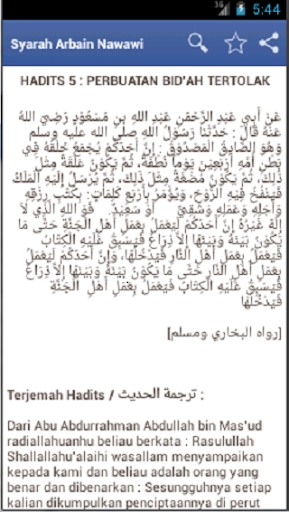 3G 5:44
Syarah Arbain Nawawi
HADITS 5 : PERBUATAN BID'AH TERTOLAK
عَنْ أَبِي عَبْدِ الرَّحْمَنِ عَبْدِ اللهِ بنِ مَسْعُوْدٍ رَضِيَ اللهُ
عَنْهُ قَالَ : حَدَّثَنَا رَسُوْلُ اللهِ صلى الله عليه وسلم
وَهُوَ الصَّادِقُ الْمَصْدُوْقُ : إِنَّ أَحَدَكُمْ يُجْمَعُ خَلْقُهُ فِي
بَطْنِ أُمِّهِ أَرْبَعِيْنَ يَوْماً نُطْفَةً، ثُمَّ يَكُوْنُ عَلَقَةً مِثْلَ
ذَلِكَ، ثُمَّ يَكُوْنُ مُضْغَةً مِثْلَ ذَلِكَ، ثُمَّ يُرْسَلُ إِلَيْهِ الْمَلَكُ
فَيَنْفُخُ فِيْهِ الرُّوْحَ، وَيُؤْمَرُ بِأَرْبَعِ كَلِمَاتٍ: بِكَتْبِ رِزْقِهِ
وَأَجَلِهِ وَعَمَلِهِ وَشَقِيٌّ أَوْ سَعِيْدٌ. فَوَ اللهِ الَّذِي لاَ
إِلَهَ غَيْرُهُ إِنَّ أَحَدَكُمْ لَيَعْمَلُ بِعَمَلِ أَهْلِ الْجَنَّةِ حَتَّى مَا
يَكُوْنُ بَيْنَهُ وَبَيْنَهَا إِلاَّ ذِرَاعٌ فَيَسْبِقُ عَلَيْهِ الْكِتَابُ
فَيَعْمَلُ بِعَمَلِ أَهْلِ النَّارِ فَيَدْخُلُهَا، وَإِنَّ أَحَدَكُمْ لَيَعْمَلُ
بِعَمَلِ أَهْلِ النَّارِ حَتَّى مَا يَكُوْنُ بَيْنَهُ وَبَيْنَهَا إِلاَّ ذِرَاعٌ
فَيَسْبِقُ عَلَيْهِ الْكِتَابُ فَيَعْمَلُ بِعَمَلِ أَهْلِ الْجَنَّةِ
فَيَدْخُلُهَا
[رواه البخاري ومسلم]
Terjemah Hadits / ترجمة الحديث :
Dari Abu Abdurrahman Abdullah bin Mas'ud
radiallahuanhu beliau berkata : Rasulullah
Shallallahu'alaihi wasallam menyampaikan
kepada kami dan beliau adalah orang yang
benar dan dibenarkan : Sesungguhnya setiap
kalian dikumpulkan penciptaannya di perut